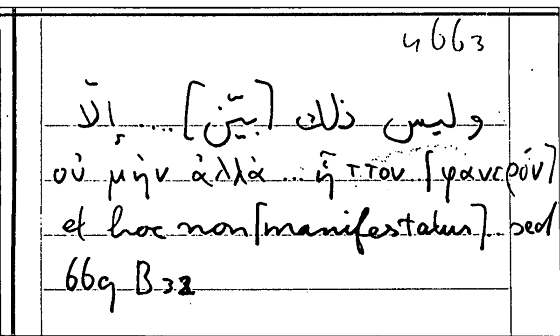 4663
وليس ذلك [بيّن] .... إلّا
οὐ μὴν ἀλλὰ ... ἧττον [φανερόν]
et hoc non [manifestatus] .. sed
669 B 32